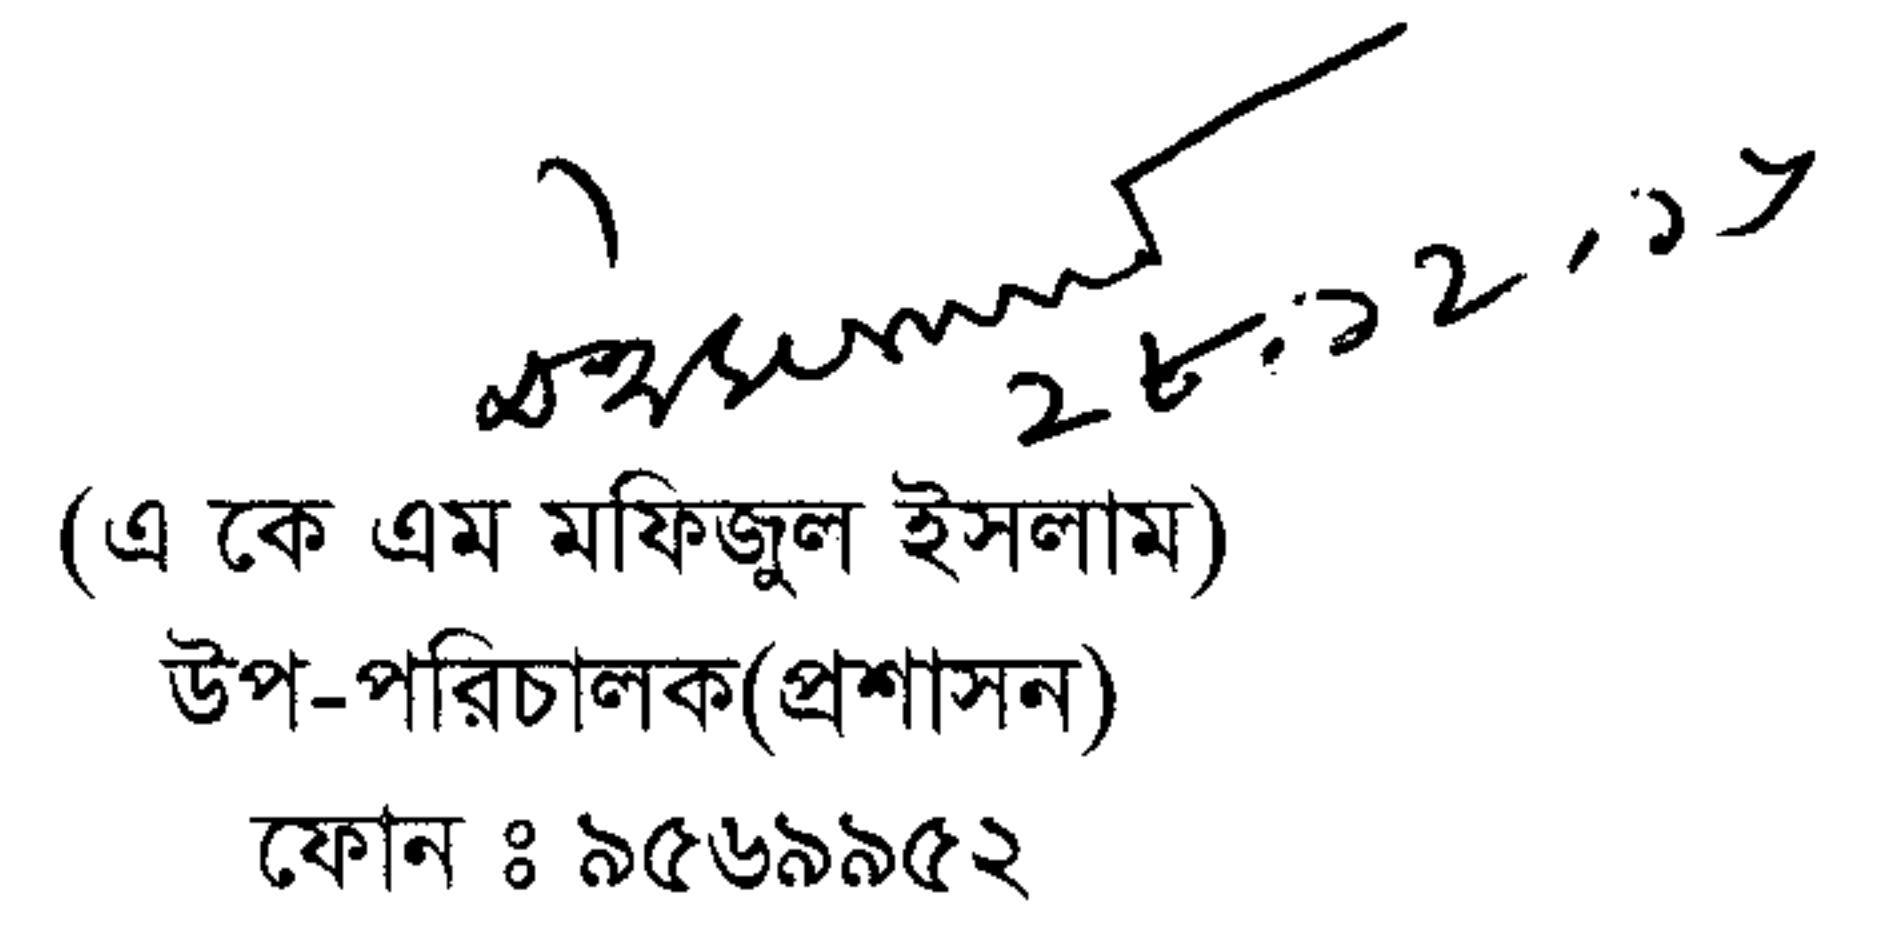 (এ কে এম মফিজুল ইসলাম)
উপ-পরিচালক(প্রশাসন)
ফোন ঃ ৯৫৬৯৯৫২